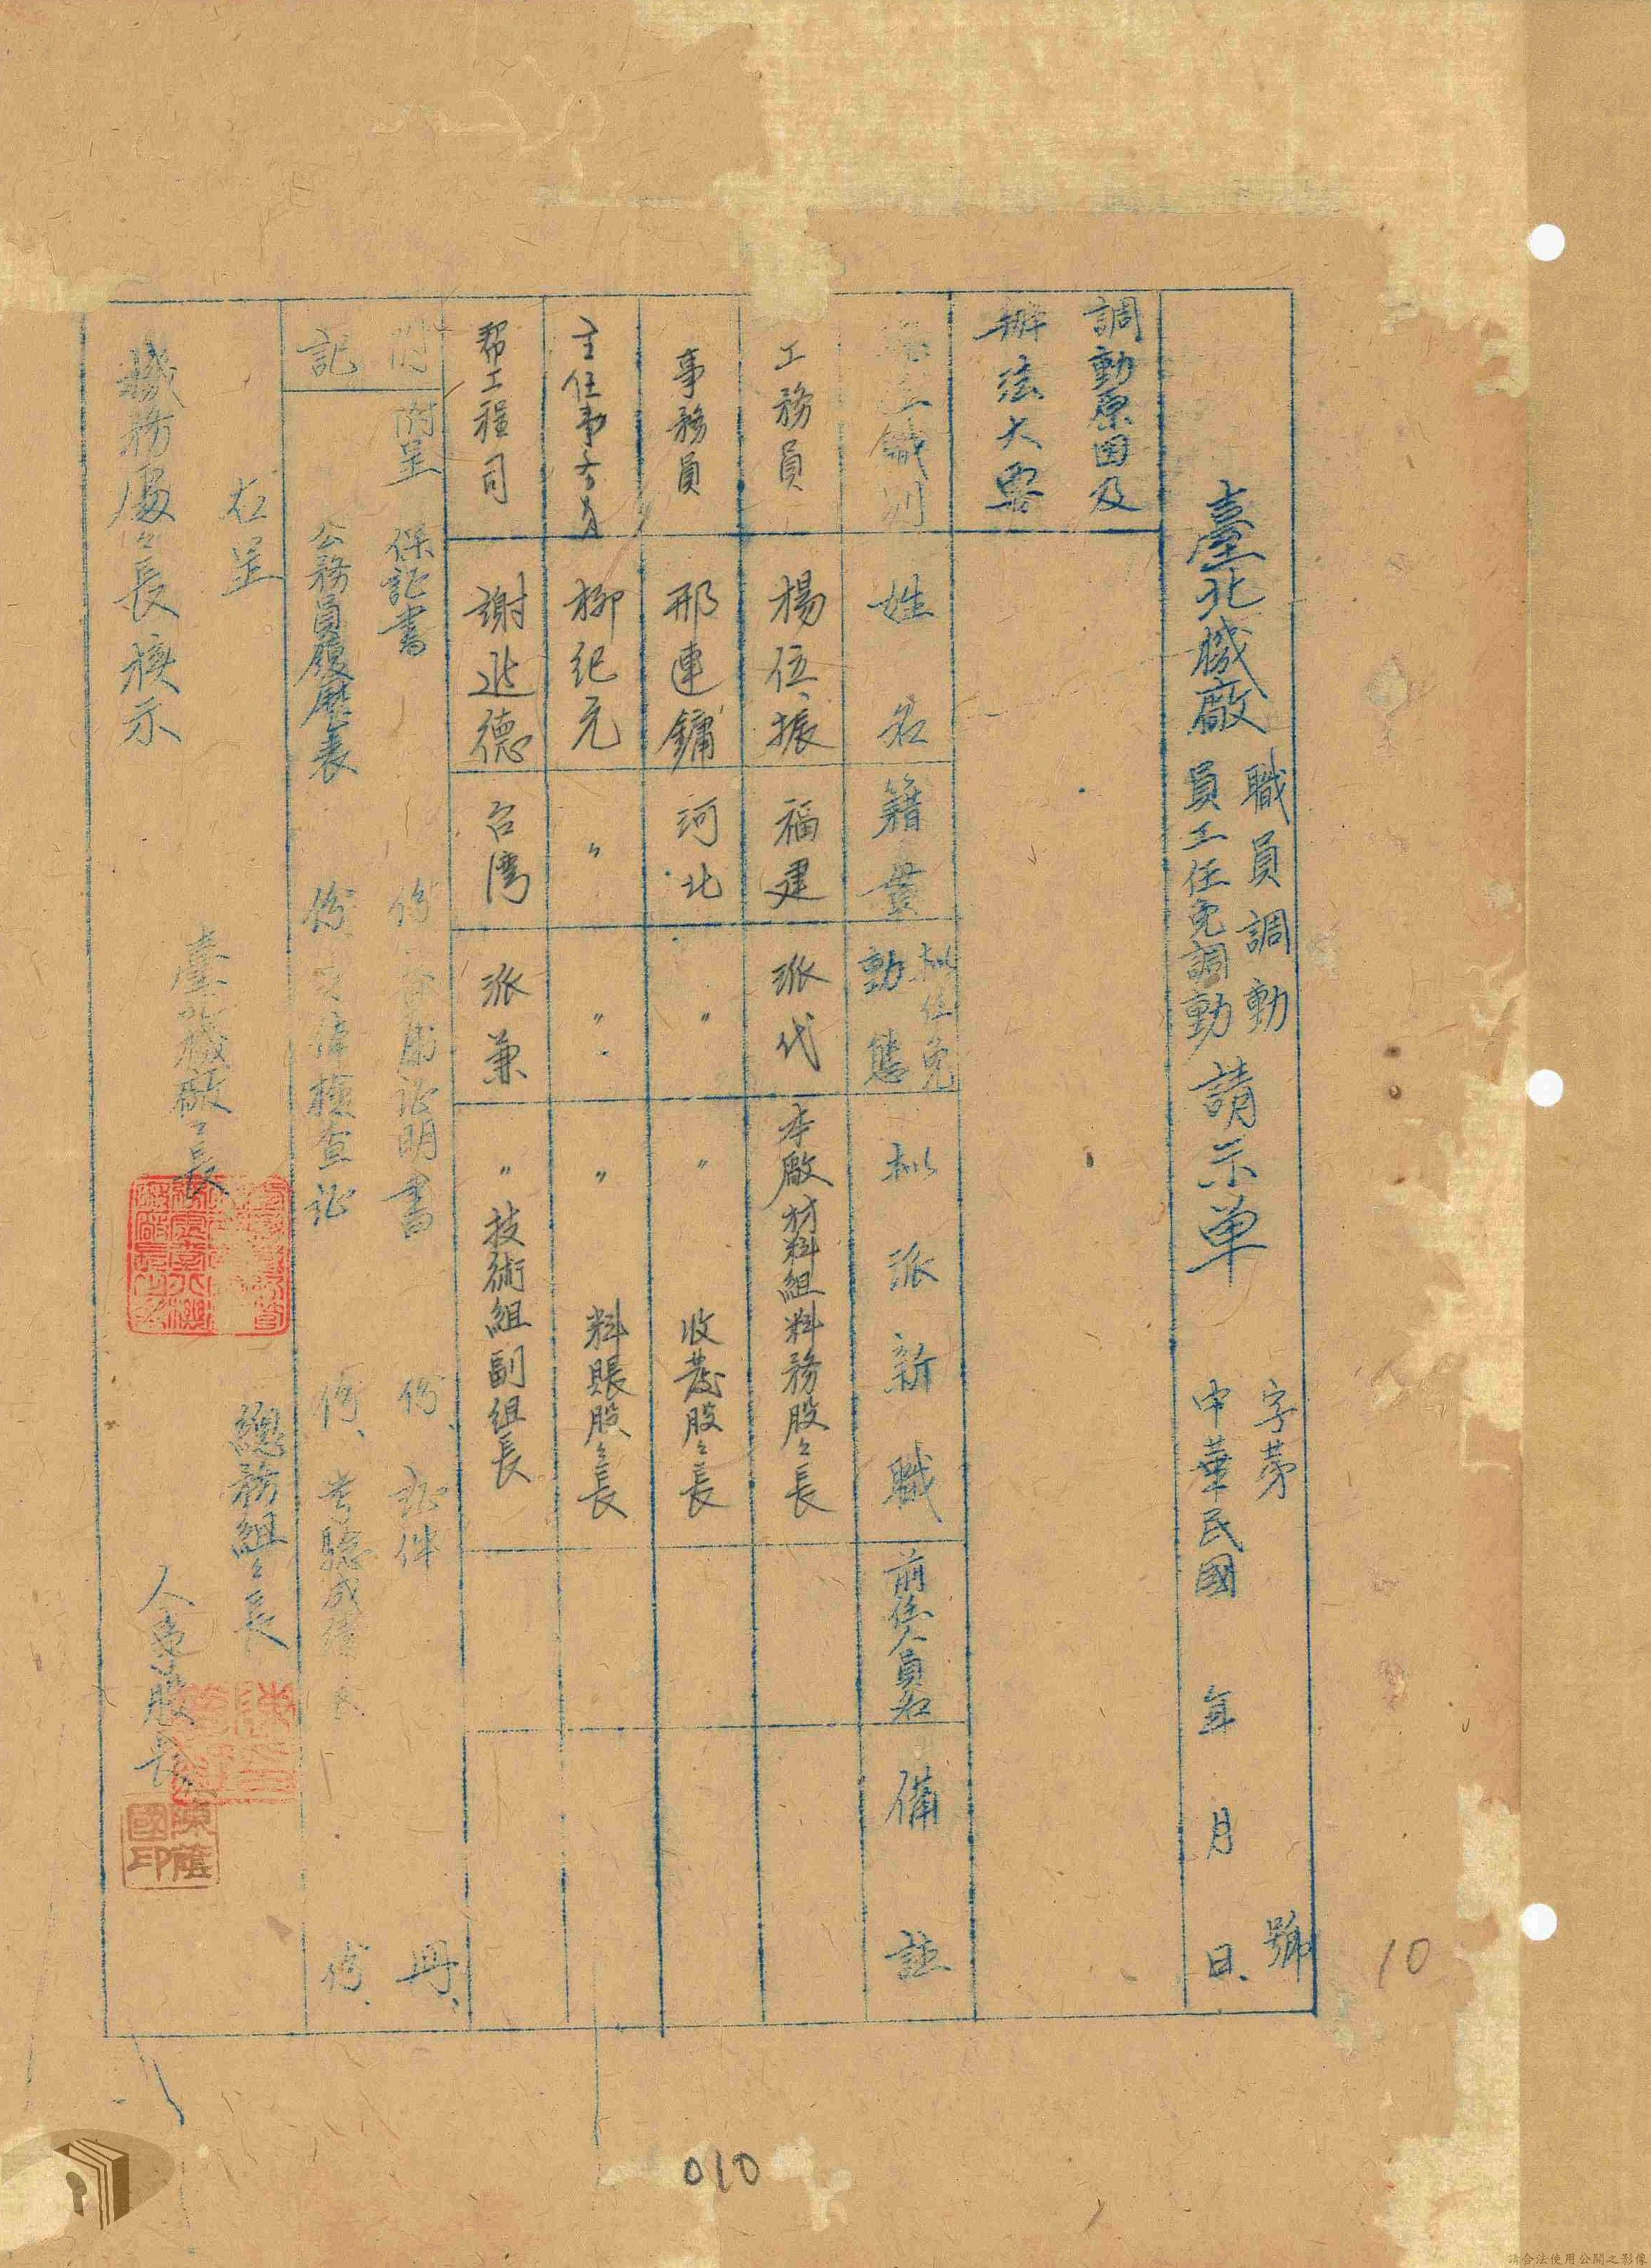 臺北機廠
職員調動
員工任免調動
請示单
字第 號
中華民國 年 月 日
調動原因及
辦法大要
級别
姓名
籍貫
擬任免
動態
拟派新職
前任人員名
備註
工務員 楊伍振 福建 派代 本廠材料組料務股々長
事務員 邢連鏞 河北 〃 〃 收發股々長
主任事務員 柳紀元 〃 〃 〃 料賬股々長
帮工程司 謝進德 台湾 派兼 〃 技術組副組長
附記
附呈
保証書 份
証明書 份、証件 冊、
公務員履歷表 份
体檢查証 份、考驗成績 份、
右呈
機務處々長核示
臺北機廠々長
總務組々長
人事股長
陳蔭國印
10
010
請合法使用公開之影像